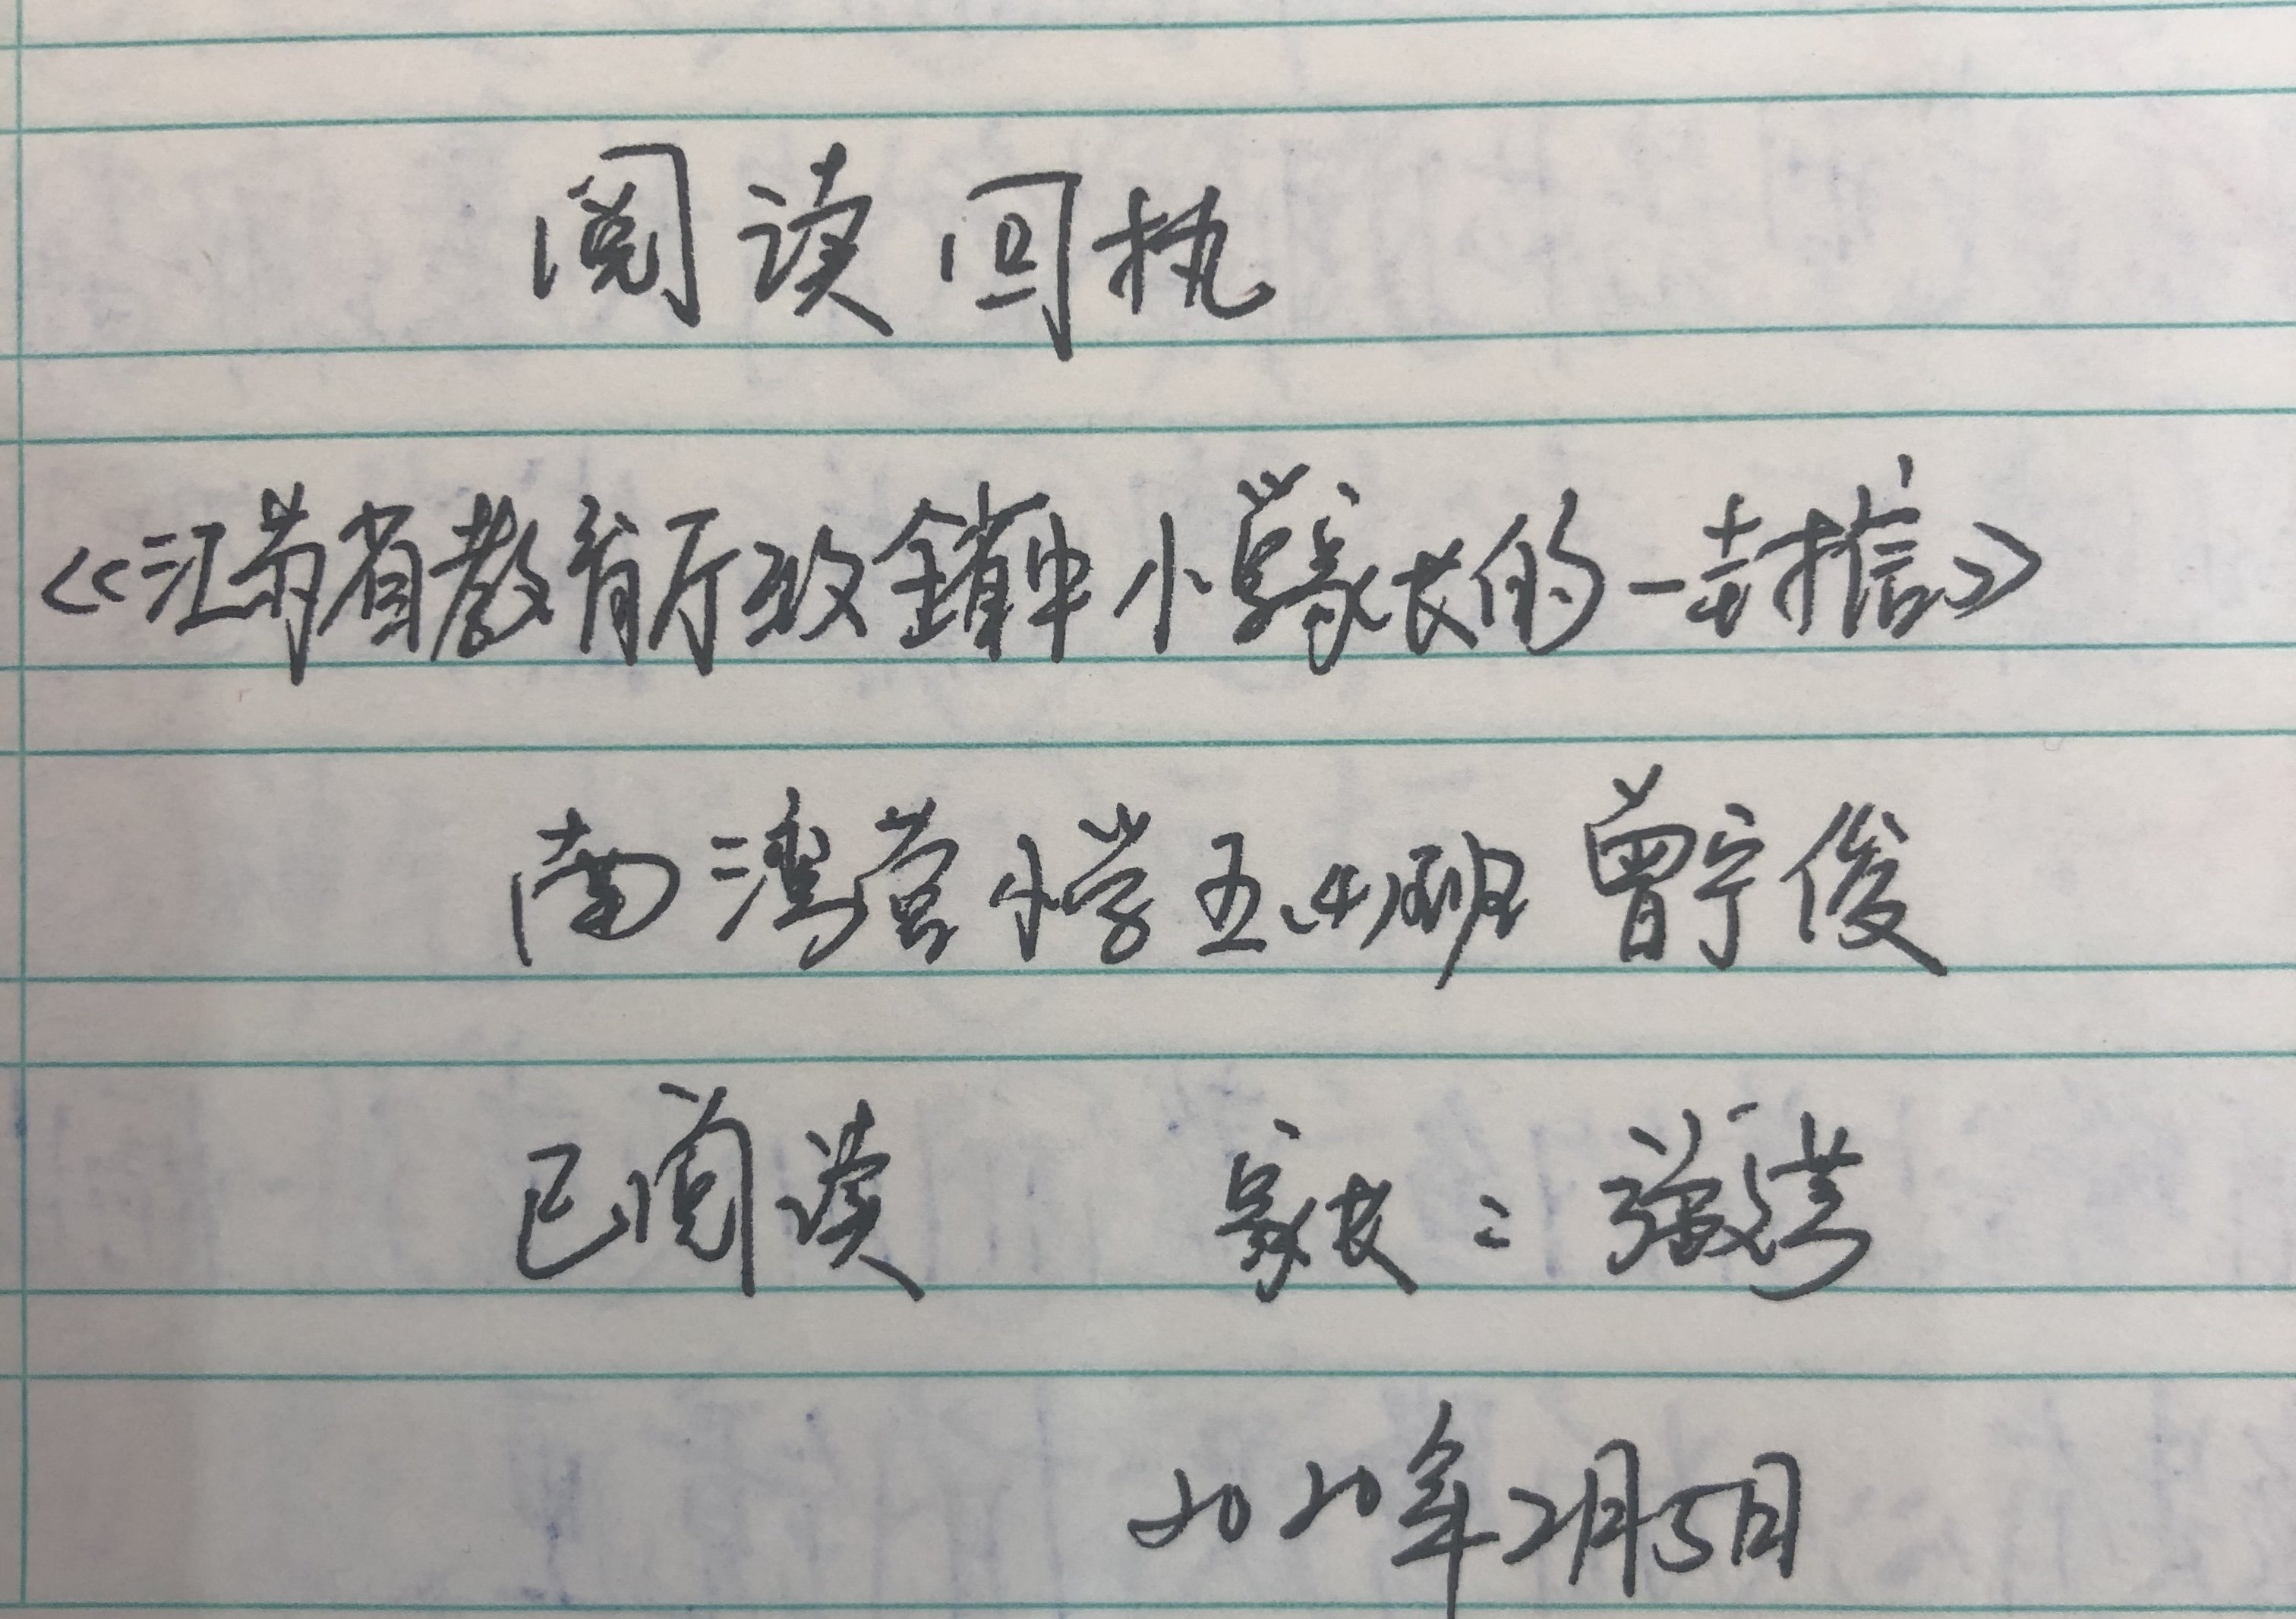 阅读回执
《江苏省教育厅致全省中小学家长的一封信》
南湾营小学五(4)班 曾宁俊
已阅读 家长：张
2020年2月5日